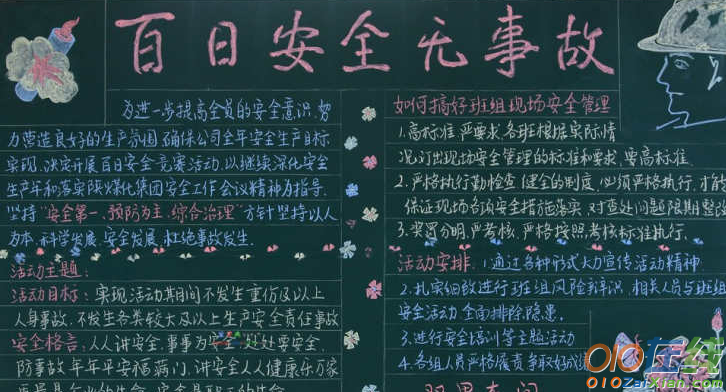 百日安全无事故
为进一步提高全员的安全意识,努
力营造良好的生产氛围,确保公司全年安全生产目标
实现,决定开展百日安全竞赛活动,以继续深化安全
生产年和落实陕煤化集团安全工作会议精神为指导,
坚持"安全第一、预防为主、综合治理"方针坚持以人
为本,科学发展,安全发展,杜绝事故发生.
活动主题:
活动目标:实现活动期间不发生重伤及以上
人身事故,不发生各类较大及以上生产安全责任事故
安全格言:人人讲安全,事事为安全,处处要安全.
防事故年年平安福满门,讲安全人人健康乐万家
如何搞好班组现场安全管理
1.高标准,严要求,各班根据实际情
况订出现场安全管理的标准和要求,要高标准.
2.严格执行勤检查,健全的制度,必须严格执行,才能
保证现场各项安全措施落实,对查处问题限期整改
3.奖罚分明,严考核,严格按照考核标准执行.
活动安排:1.通过各种形式大力宣传活动精神
2.扎实细致进行班组风险辨识,相关人员与班组
安全活动全面排除隐患.
3.进行安全培训等主题活动
4.各组人员严格展责争取好成绩
010在线
010zaixian.com